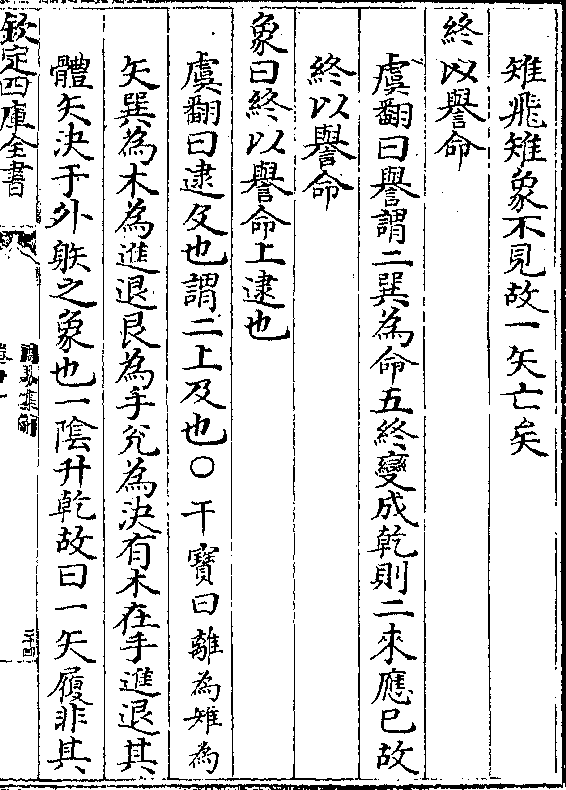 雉飛雉象不見故一矢亡矣
終以譽命
虞翻曰譽謂二巽為命五終變成乾則二來應已故
終以譽命
象曰終以譽命上逮也
虞翻曰逮及也謂二上及也○干寶曰離為雉為
矢巽為木為進退艮為手兊為決有木在手進退其
體矢決于外䠶之象也一陰升乾故曰一矢履非其
欽定四庫全書
周易集解